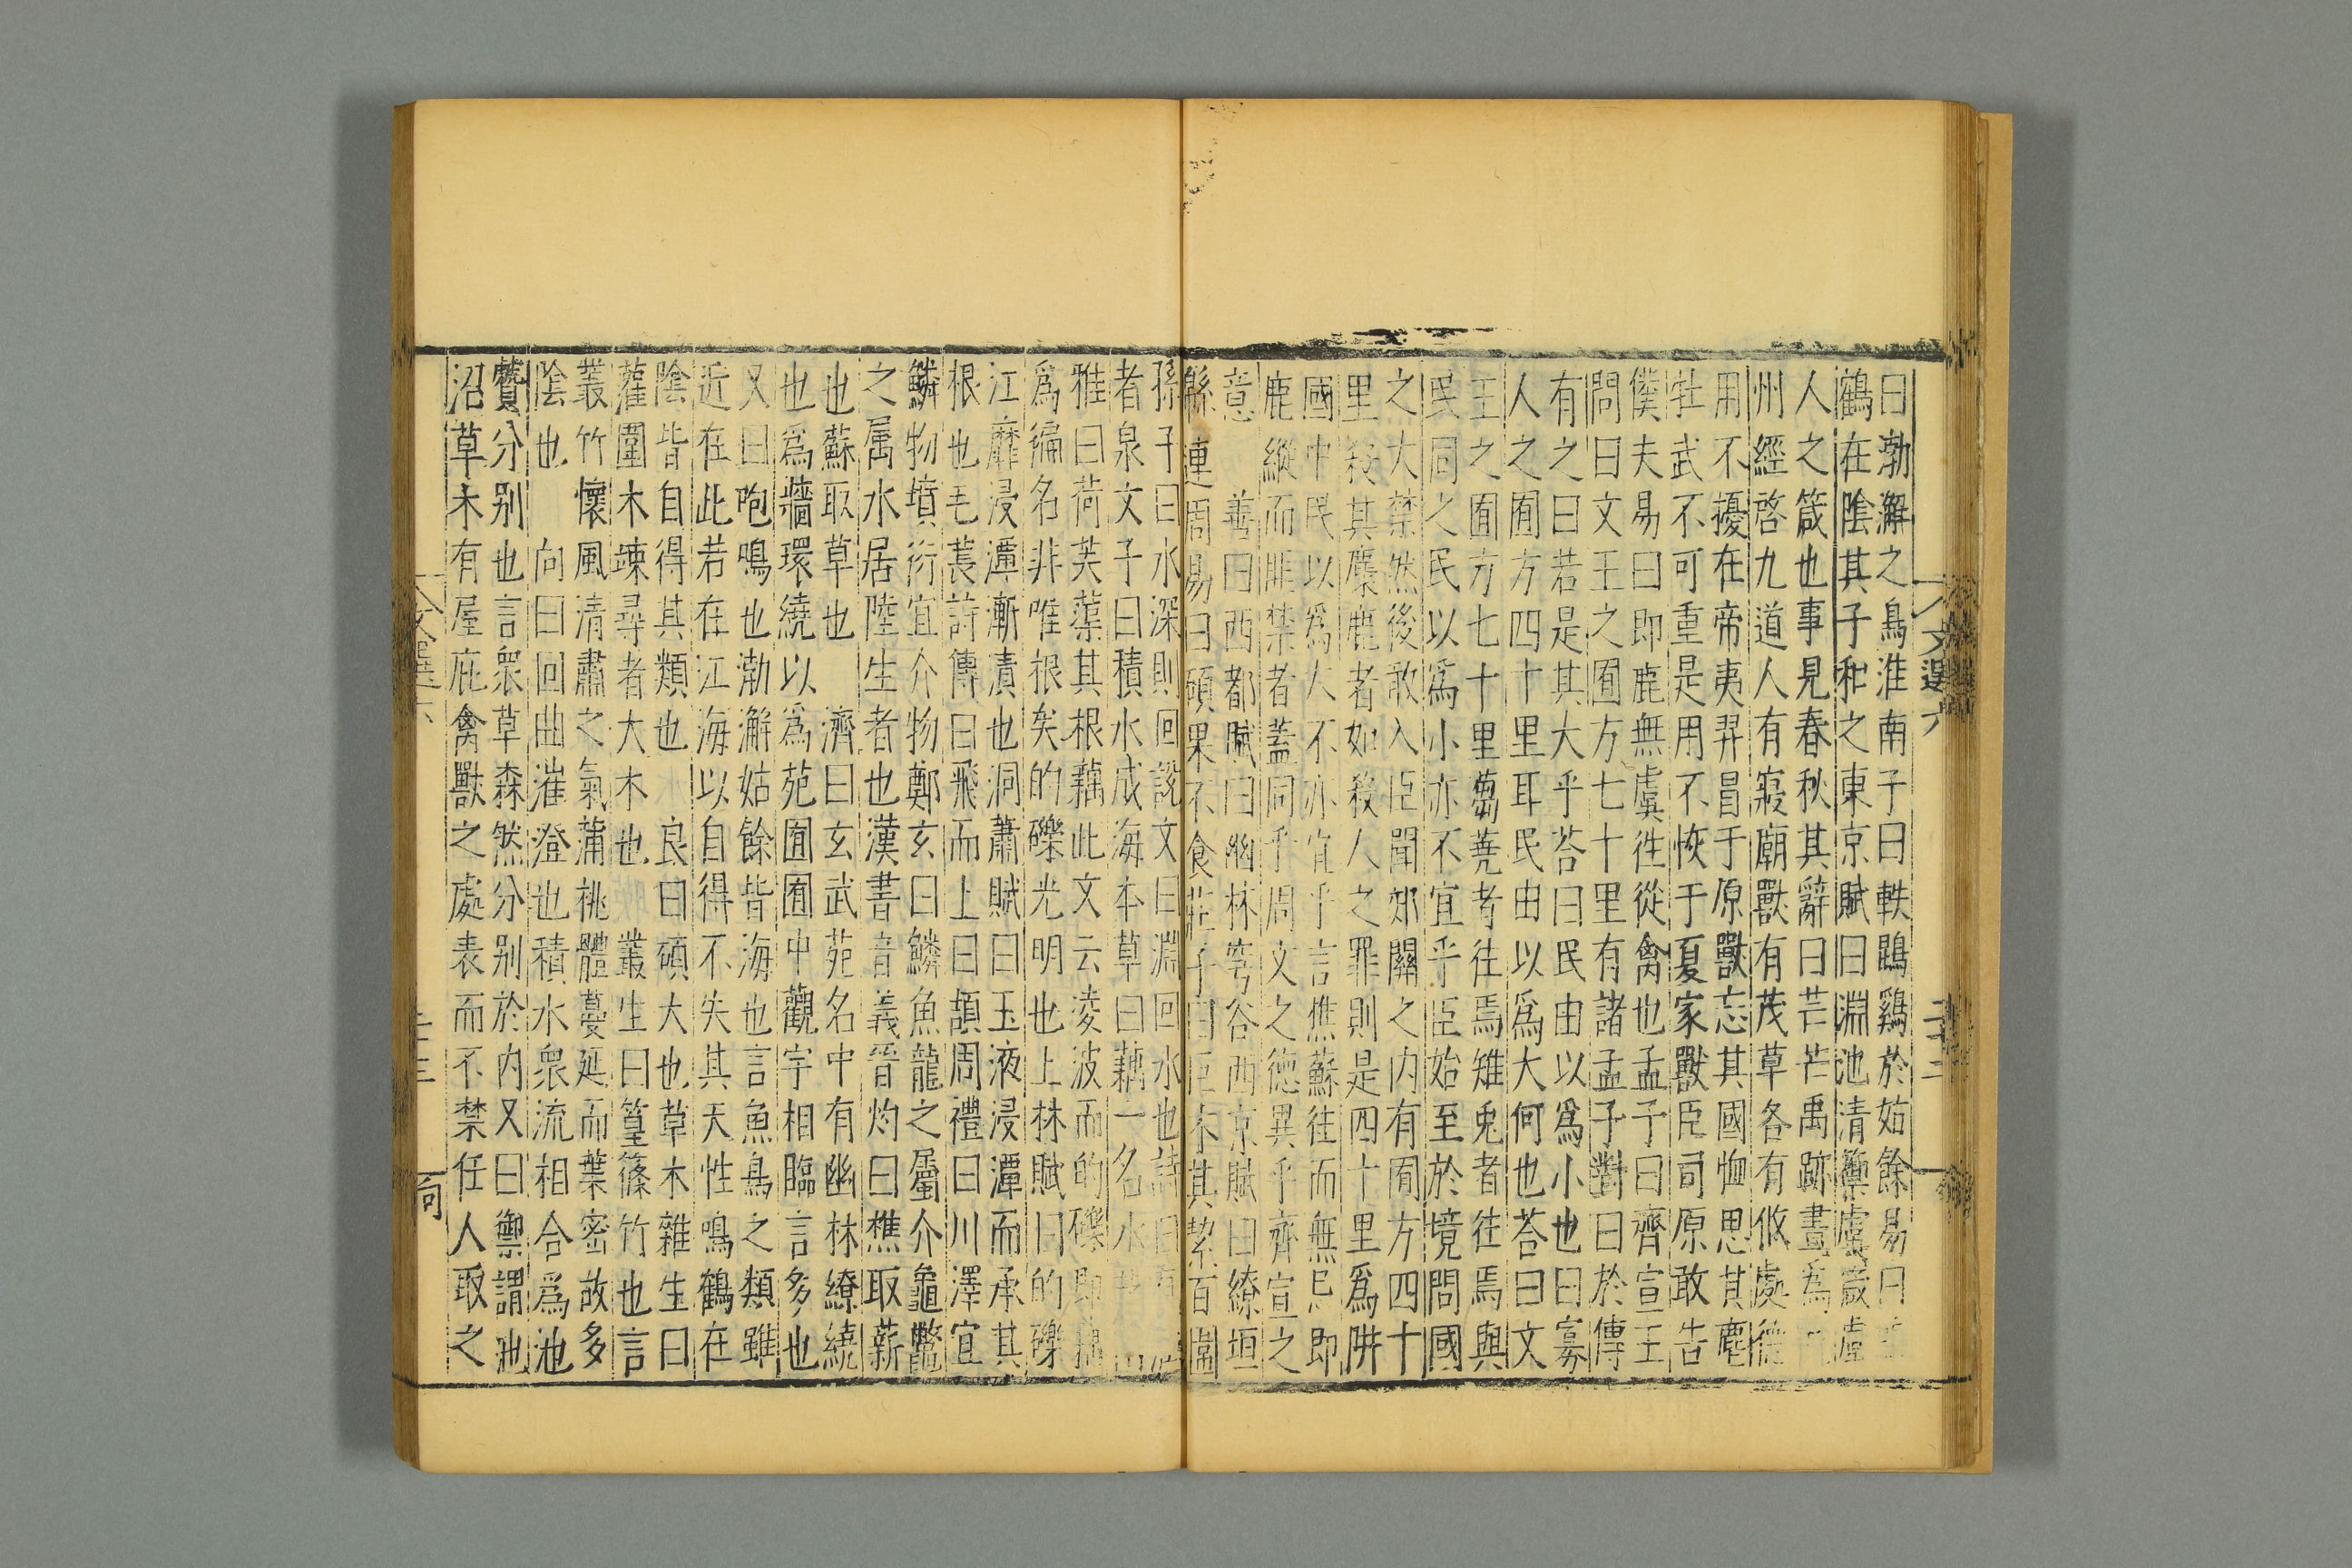 曰渤澥之鳥淮南子曰軼鶤鷄於姑餘易曰
鶴在陰其子和之東京賦曰淵池清籞虞箴虞
人之箴也事見春秋其辭曰芒芒禹跡畫爲九
州經啓九道人有寢廟獸有茂草各有攸處德
用不擾在帝夷羿冒于原獸忘其國恤思其麀
牡武不可重是用不恢于夏家獸臣司原敢告
僕夫易曰即鹿無虞徃從禽也孟子曰齊宣王
問曰文王之囿方七十里有諸孟子對曰於傳
有之曰若是其大乎荅曰民由以爲小也曰寡
人之囿方四十里耳民由以爲大何也荅曰文
王之囿方七十里蒭蕘者往焉雉兎者往焉與
民同之民以爲小亦不宜乎臣始至於境問國
之大禁然後敢入臣聞郊關之内有囿方四十
里殺其麋鹿者如殺人之罪則是四十里爲阱
國中民以爲大不亦宜乎言樵蘇往而無忌即
鹿縱而匪禁者蓋同乎周文之德異乎齊宣之
意 善曰西都賦曰幽林穹谷西京賦曰繚垣
緜連周易曰碩果不食莊子曰匠木其絜百圍
文選六
二十二
孫子曰水深則回說文曰淵回水也詩曰有
者泉文子曰積水成海本草曰藕一名水
雅曰荷芙蕖其根藕此文云凌波而的礫即藕
爲徧名非唯根矣的礫光明也上林賦曰的礫
江靡浸潭漸漬也洞蕭賦曰玉液浸潭而承其
根也毛萇詩傳曰飛而上曰頡周禮曰川澤宜
鱗物墳衍宜介物鄭玄曰鱗魚龍之屬介龜鼈
之属水居陸生者也漢書音義晉灼曰樵取薪
也蘇取草也 濟曰玄武苑名中有幽林繚繞
也爲牆環繞以爲苑囿囿中觀宇相臨言多也
又曰咆鳴也渤澥姑餘皆海也言魚鳥之類雖
近在此若在江海以自得不失其天性鳴鶴在
陰皆自得其類也 良曰碩大也草木雜生曰
灌圍木踈尋者大木也 叢生曰篁篠竹也言
叢竹懷風清肅之氣蒲桃體蔓延而葉密故多
陰也 向曰回曲漼澄也積水衆流相合爲池
贙分别也言衆草森然分别於内又曰禦謂池
沼草木有屋庇禽獸之處表而不禁任人取之
文選六
二十三
何